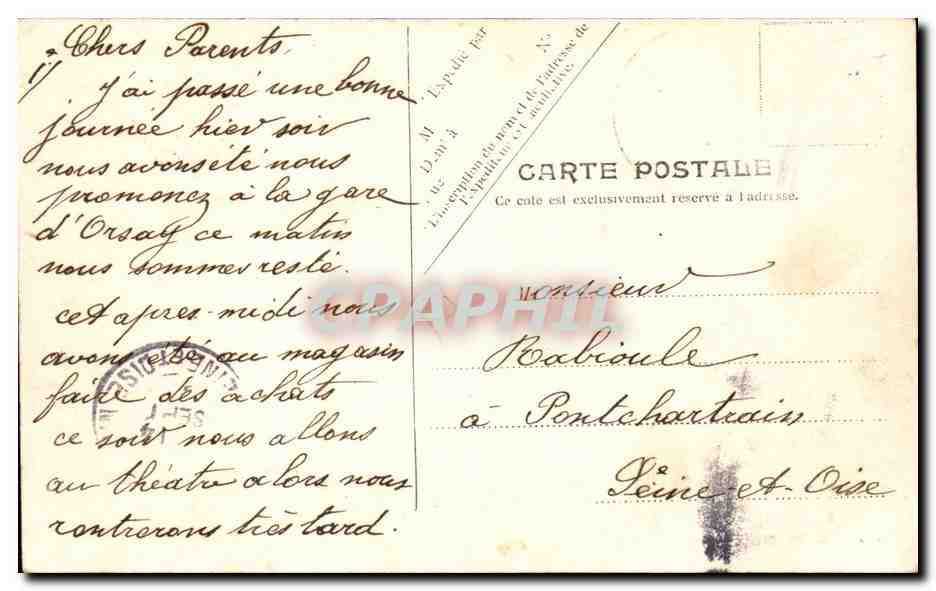 1)
Chers Parents,
j'ai passé une bonne
journée hier soir
nous avons été nous
promonez à la gare
d'Orsay ce matin
nous sommes resté.
cet apres-midi nous
avons eté au magasin
faire des achats
ce soir nous allons
au théatre alors nous
rentrerons très tard.
Expédié par
M
Dem.t à
rue
No
L'inscription du nom et de l'adresse de
l'expéditeur est facultative.
CARTE POSTALE
Ce coté est exclusivement réservé à l'adresse.
Monsieur
Rabioule
à Pontchartrain
Seine-et-Oise
CPAPHIL
SEINE-ET-OISE
SEPT
14